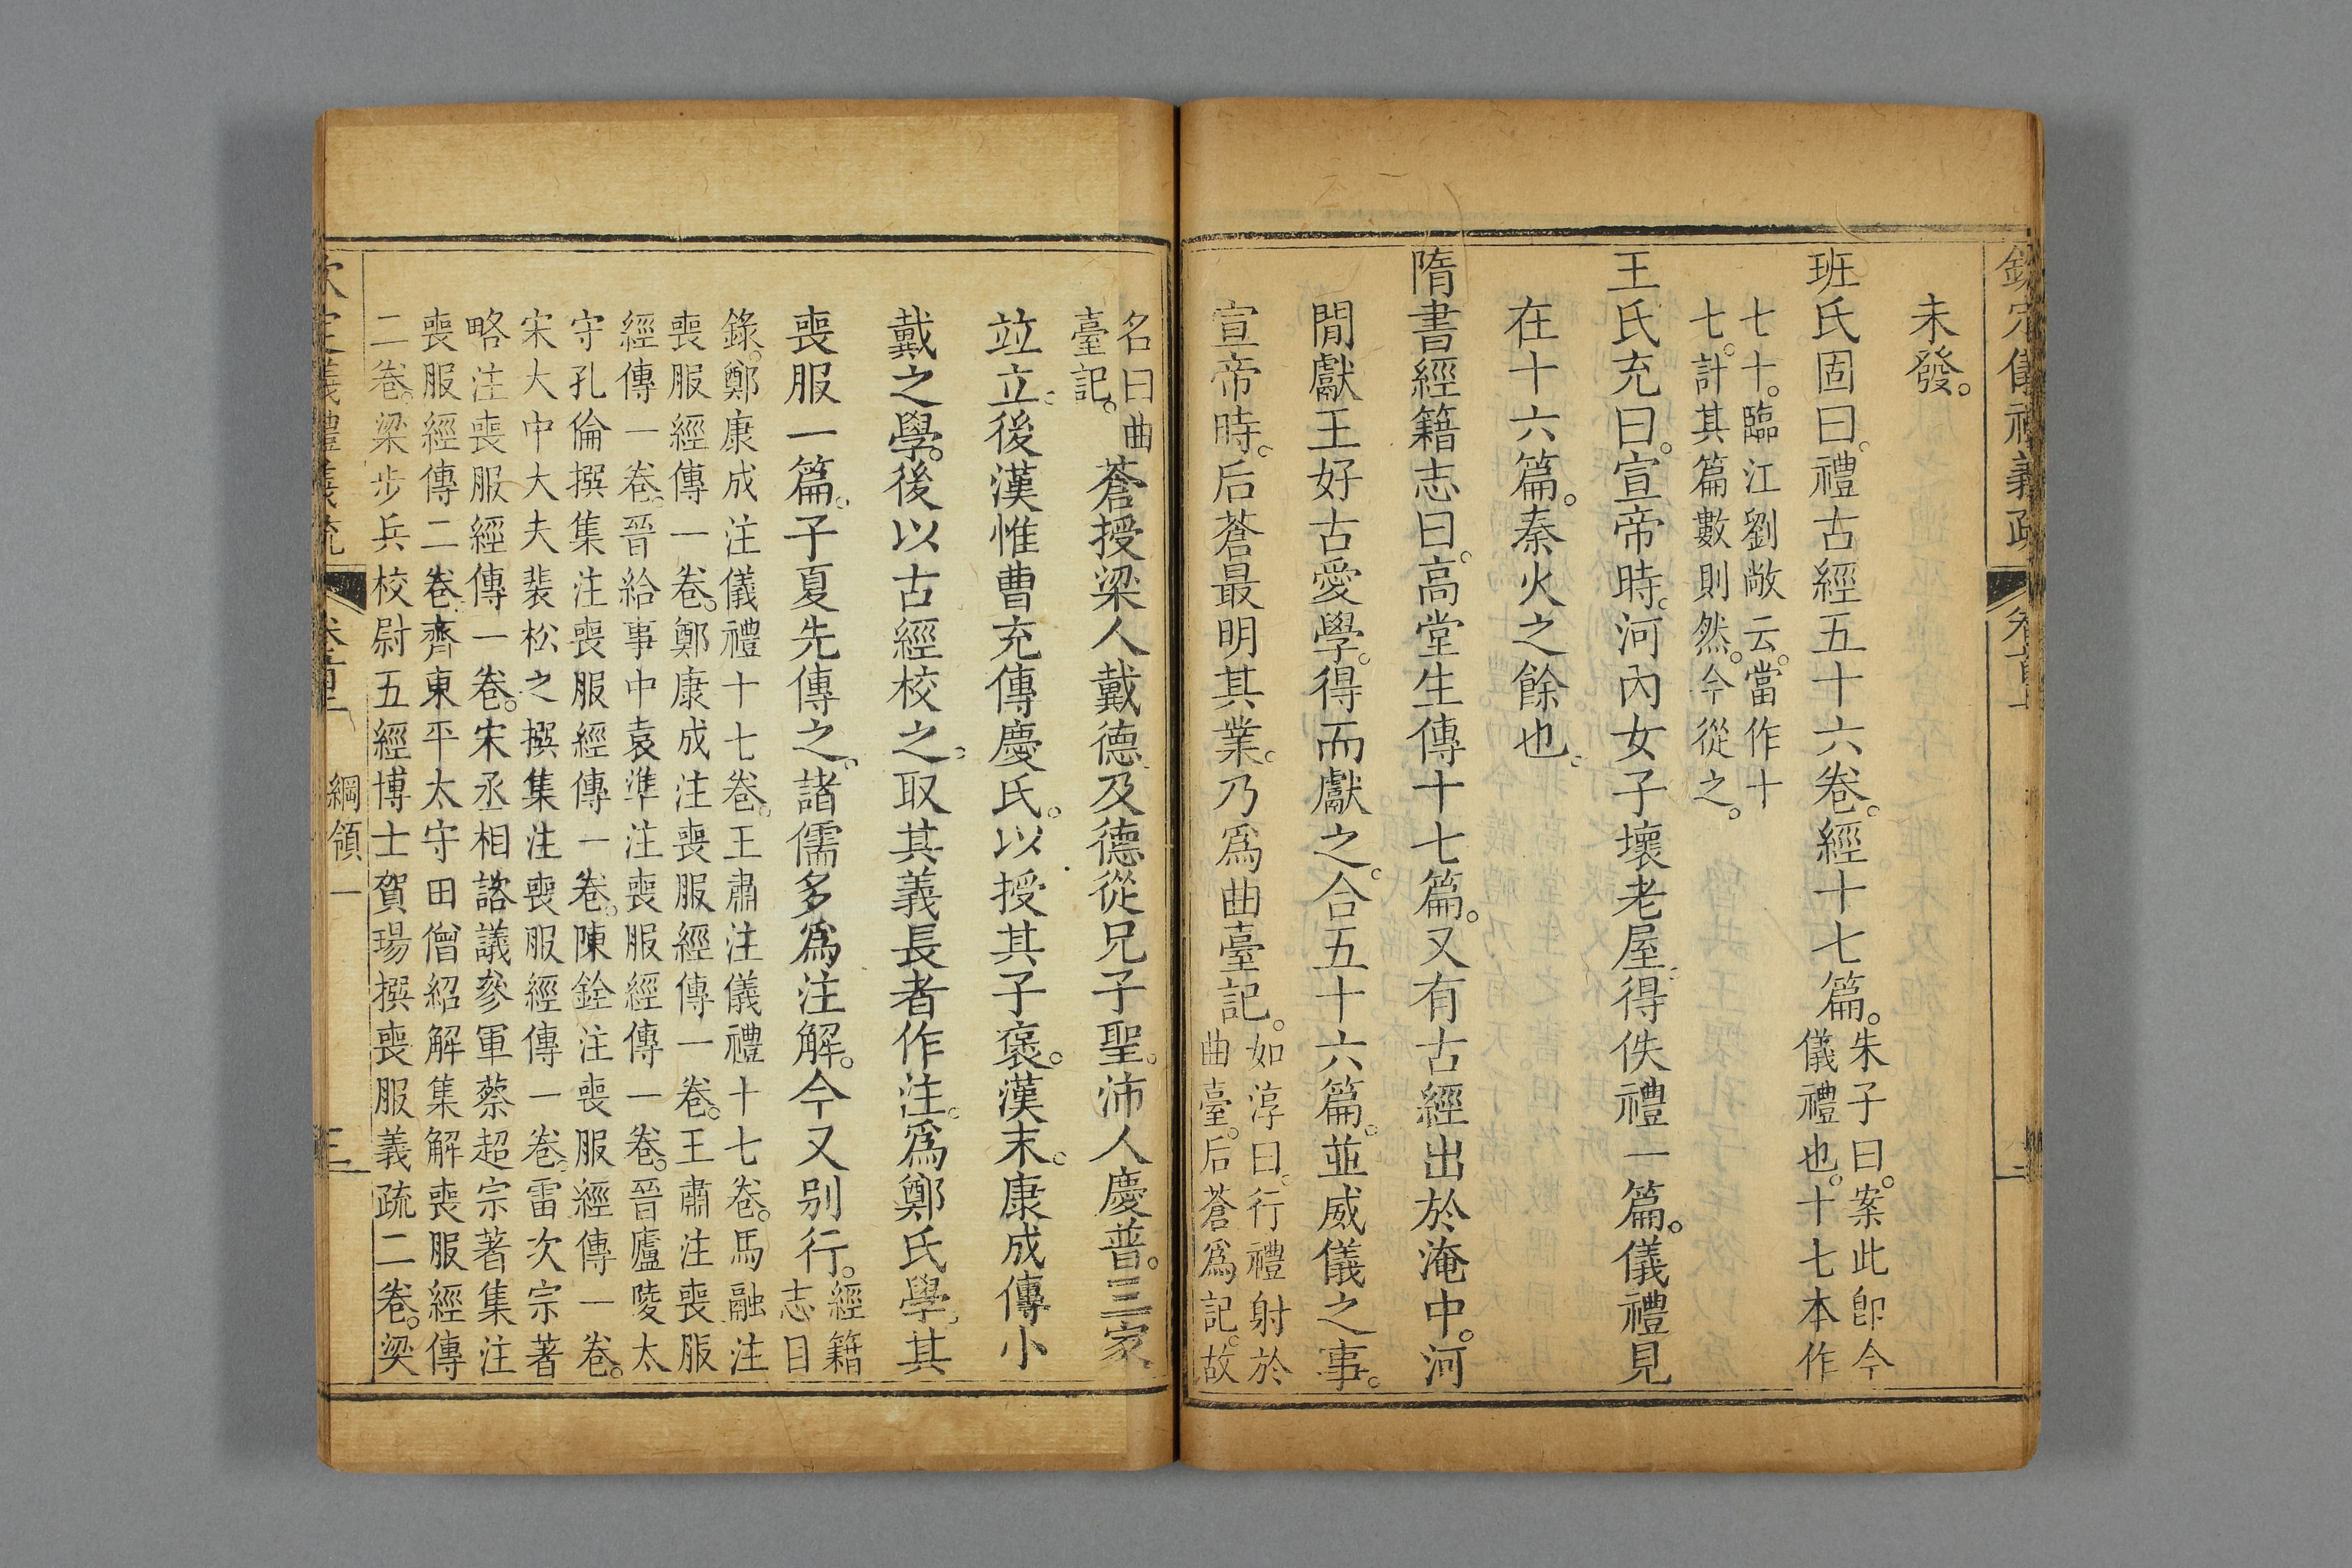 欽定儀禮義疏 卷首上 二
未發。
班氏固曰。禮古經五十六卷。經十七篇。朱子曰。案此卽今
儀禮也。十七本作
七十。臨江劉敞云。當作十
七。計其篇數則然。今從之。
王氏充曰。宣帝時。河內女子壞老屋。得佚禮一篇。儀禮見
在十六篇。秦火之餘也。
隋書經籍志曰。高堂生傳十七篇。又有古經出於淹中。河
閒獻王好古愛學。得而獻之。合五十六篇。並威儀之事。
宣帝時。后蒼最明其業。乃爲曲臺記。如淳曰。行禮射於
曲臺。后蒼爲記。故
名曰曲
臺記。
蒼授梁人戴德。及德從兄子聖。沛人慶普。三家
竝立。後漢惟曹充傳慶氏。以授其子褒。漢末。康成傳小
戴之學。後以古經校之。取其義長者作注。爲鄭氏學。其
喪服一篇。子夏先傳之。諸儒多爲注解。今又別行。經籍
志目
錄。鄭康成注儀禮十七卷。王肅注儀禮十七卷。馬融注
喪服經傳一卷。鄭康成注喪服經傳一卷。王肅注喪服
經傳一卷。晉給事中袁準注喪服經傳一卷。晉廬陵太
守孔倫撰集注喪服經傳一卷。陳銓注喪服經傳一卷。
宋大中大夫裴松之撰集注喪服經傳一卷。雷次宗著
略注喪服經傳一卷。宋丞相諮議參軍蔡超宗著集注
喪服經傳二卷。齊東平太守田僧紹解集解喪服經傳
二卷。梁步兵校尉五經博士賀瑒撰喪服義疏二卷。梁
欽定儀禮義疏 卷首上 綱領一 三